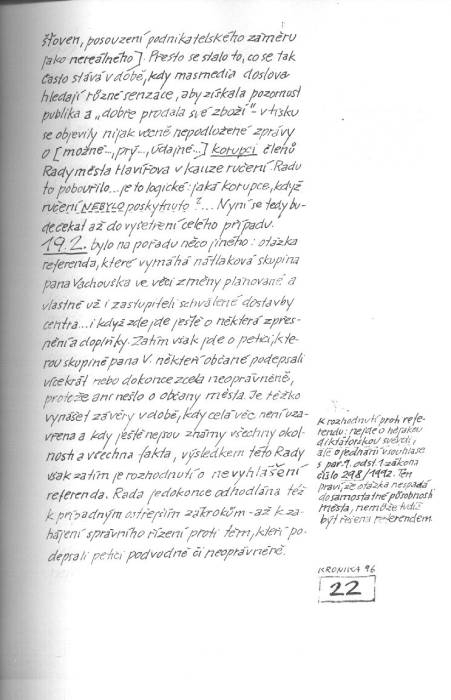 šťoven, posouzení podnikatelského záměru
jako nereálného]. Přesto se stalo to, co se tak
často stává v době, kdy masmedia doslova
hledají různé senzace, aby získala pozornost
publika a „dobře prodala své zboží" - v tisku
se objevily nijak věcně nepodložené zprávy
o [možné..., prý..., údajné...] korupci členů
Rady města Havířova v kauze ručení. Radu
to pobouřilo... je to logické: jaká korupce, když
ručení NEBYLO poskytnuto?... Nyní se tedy bu-
de čekat až do vyšetření celého případu.
19.2. bylo na pořadu něco jiného: otázka
referenda, které vymáhá nátlaková skupina
pana Vachouška ve věci změny plánované a
vlastně už i zastupiteli schválené dostavby
centra... i když zde jde ještě o některá zpřes-
nění a doplňky. Zatím však jde o petici, kte-
rou skupině pana V. někteří občané podepsali
vícekrát nebo dokonce zcela neoprávněně,
protože ani nešlo o občany města. Je těžko
vynášet závěry v době, kdy celá věc není uza-
vřena a kdy ještě nejsou známy všechny okol-
nosti a všechna fakta, výsledkem této Rady
však zatím je rozhodnutí o nevyhlášení
referenda. Rada je dokonce odhodlána též
k případným ostřejším zákrokům - až k za-
hájení správního řízení proti těm, kteří po-
depsali petici podvodně či neoprávněně.
K rozhodnutí proti refe-
rendu: nejde o nějakou
diktátorskou svévoli,
ale o jednání v souhlase
s par. 9. odst. 1 zákona
číslo 298/1992. Ten
praví, že otázka nespadá
do samostatné působnosti
města, nemůže tudíž
být řešena referendem
KRONIKA 96
22